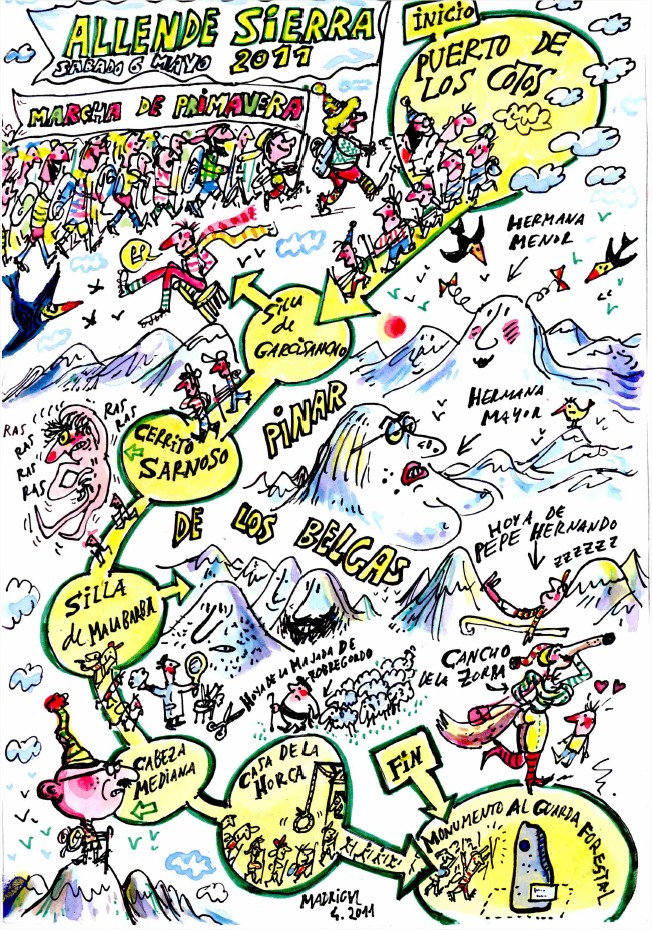 ALLENDE SIERRA
SABADO 6 MAYO 2011
MARCHA DE PRIMAVERA
INICIO
PUERTO DE
LOS COTOS
HERMANA
MENOR
SILLA
de
GARCISANCHO
HERMANA
MAYOR
RAS
RAS
RAS
RAS
RAS
RAS
CERRITO
SARNOSO
PINAR
DE LOS BELGAS
HOYA DE
PEPE HERNANDO
ZZZZZZ
SILLA
de MALABARBA
HOYA DE LA MAJADA DE
ROBREGORDO
CANCHO
DE LA ZORRA
CABEZA
MEDIANA
CASA DE LA
HORCA
FIN
MONUMENTO AL GUARDA FORESTAL
MADRIGAL
4. 2011